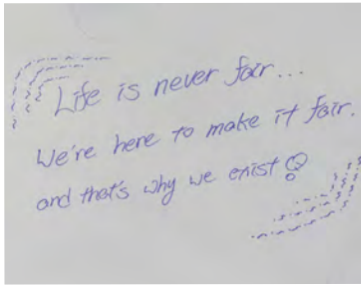 Life is never fair...
We're here to make it fair.
and that's why we exist!